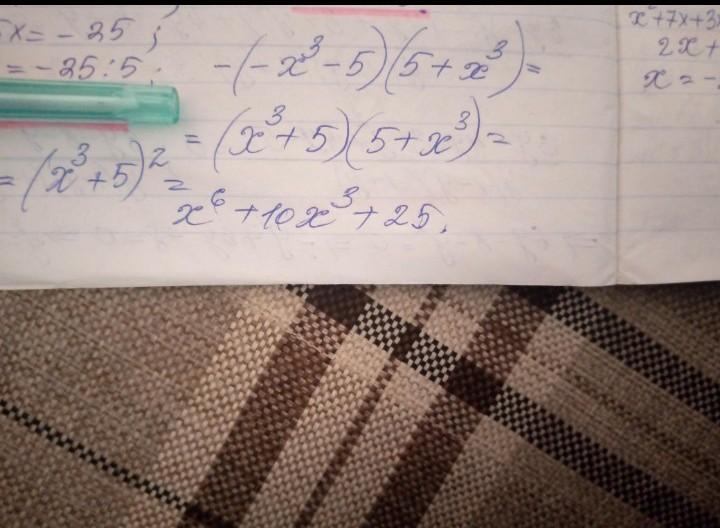 5x = -25;
= -25:5;
-(-x³-5)(5+x³)=
=(x³+5)(5+x³)=
=(x³+5)²=
x⁶+10x³+25.
x²+7x+3
2x+
x = -